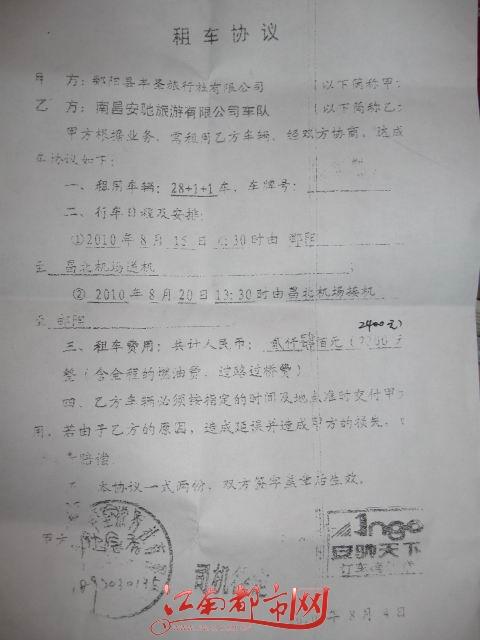 租车协议
方：鄱阳县丰圣旅行社有限公司 （以下简称甲
乙 方：南昌安驰旅游有限公司车队 （以下简称乙
甲方根据业务，需租用乙方车辆，经双方协商，达成
车协议如下：
一、租用车辆：28+1+1车，车牌号：
二、行车日程及安排：
①2010年8月15日 :30时由 鄱阳
至 昌北机场送机 ；
② 2010年8月20日13:30时由昌北机场接机
至 鄱阳
2400元）
三、租车费用：共计人民币：贰仟肆佰元（
整（含全程的燃油费、过路过桥费）
四、乙方车辆必须按指定的时间及地点准时交付甲方
用，若由于乙方的原因，造成延误并造成甲方的损失，
赔偿
本协议一式两份，双方签字盖章后生效。
安驰天下
订车
司机
江南都市网
年8月4日